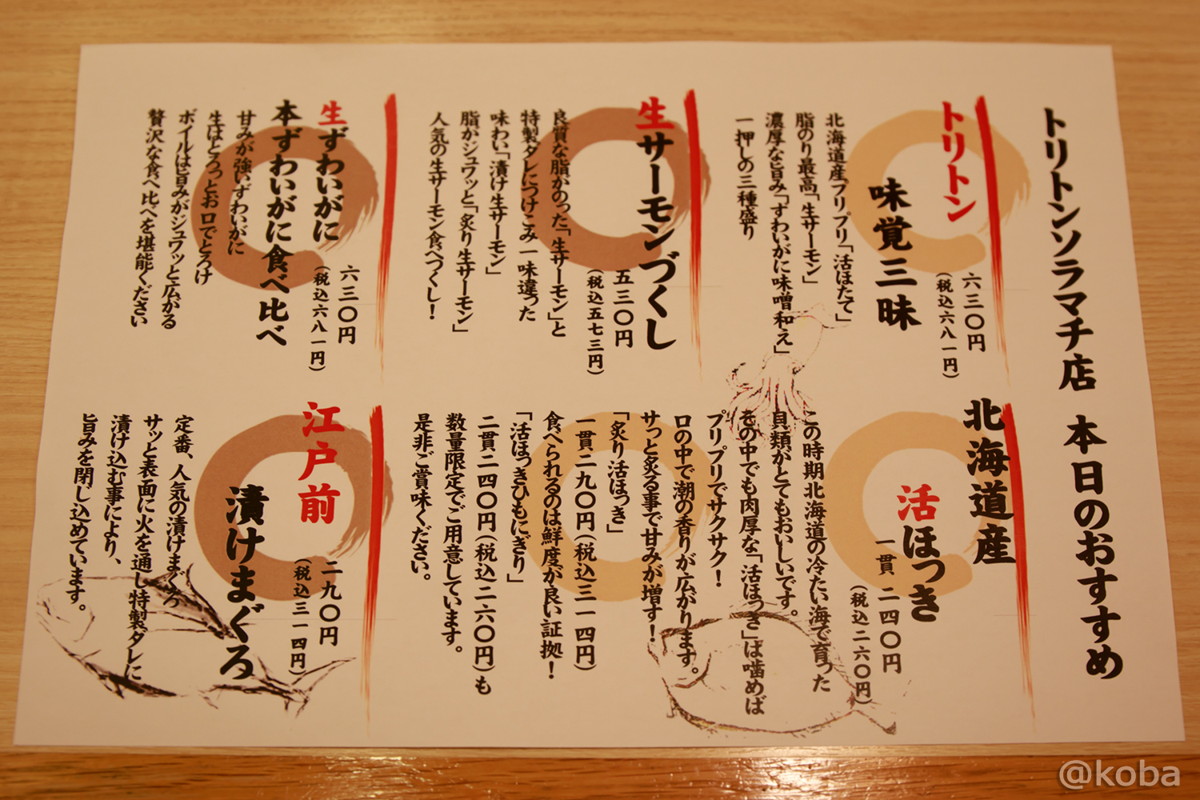 トリトンソラマチ店 本日のおすすめ
トリトン
味覚三昧
六三〇円
(税込六八一円)
北海道産プリプリ「活ほたて」
脂のり最高「生サーモン」
濃厚な旨み「ずわいがに味噌和え」
一押しの三種盛り
生サーモンづくし
五三〇円
(税込五七三円)
良質な脂がのった「生サーモン」と
特製ダレにつけこみ一味違った
味わい「漬け生サーモン」
脂がジュワッと「炙り生サーモン」
人気の生サーモン食べつくし!
生ずわいがに
本ずわいがに食べ比べ
六三〇円
(税込六八一円)
甘みが強いずわいがに
生はとろっとお口でとろけ
ボイルは旨みがジュワッと広がる
贅沢な食べ比べを堪能ください
北海道産
活ほっき
一貫、二四〇円
(税込二六〇円)
この時期北海道の冷たい海で育った
貝類がとてもおいしいです。
その中でも肉厚な「活ほっき」は噛めば
プリプリでサクサク!
口の中で潮の香りが広がります。
サッと炙る事で甘みが増す!
「炙り活ほっき」
一貫二九〇円(税込三一四円)
食べられるのは鮮度が良い証拠!
「活ほっきひもにぎり」
一貫二四〇円(税込二六〇円)も
数量限定でご用意しています。
是非ご賞味ください。
江戸前
漬けまぐろ
二九〇円
(税込三一四円)
定番、人気の漬けまぐろ
サッと表面に火を通し特製ダレに
漬け込む事により、
旨みを閉じ込めています。
@koba